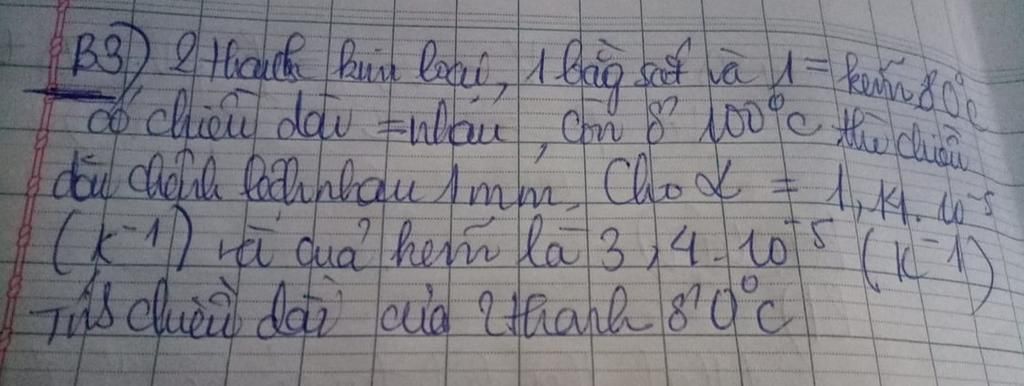 B3) 2 thanh kim loại, 1 bằg sắt và 1 = kẽm ở 0°C
có chiều dài = nhau, còn ở 100°C thì chiều
dài chênh lệch nhau 1mm. Cho α = 1,14.10⁻⁵
(K⁻¹) và của kẽm là 3,4.10⁻⁵ (K⁻¹)
Tính chiều dài của 2 thanh ở 0°C